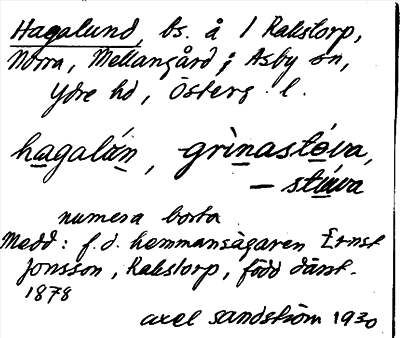 Hagalund, bs. å 1 Rakstorp,
Norra, Mellangård; Asby sn,
Ydre hd, Österg. l.
hagalún, grìnastóva,
– stuáva
numera borta
Medd: f.d. hemmansägaren Ernst
Jonsson, Rakstorp, född därst.
1878
Axel Sandström 1930